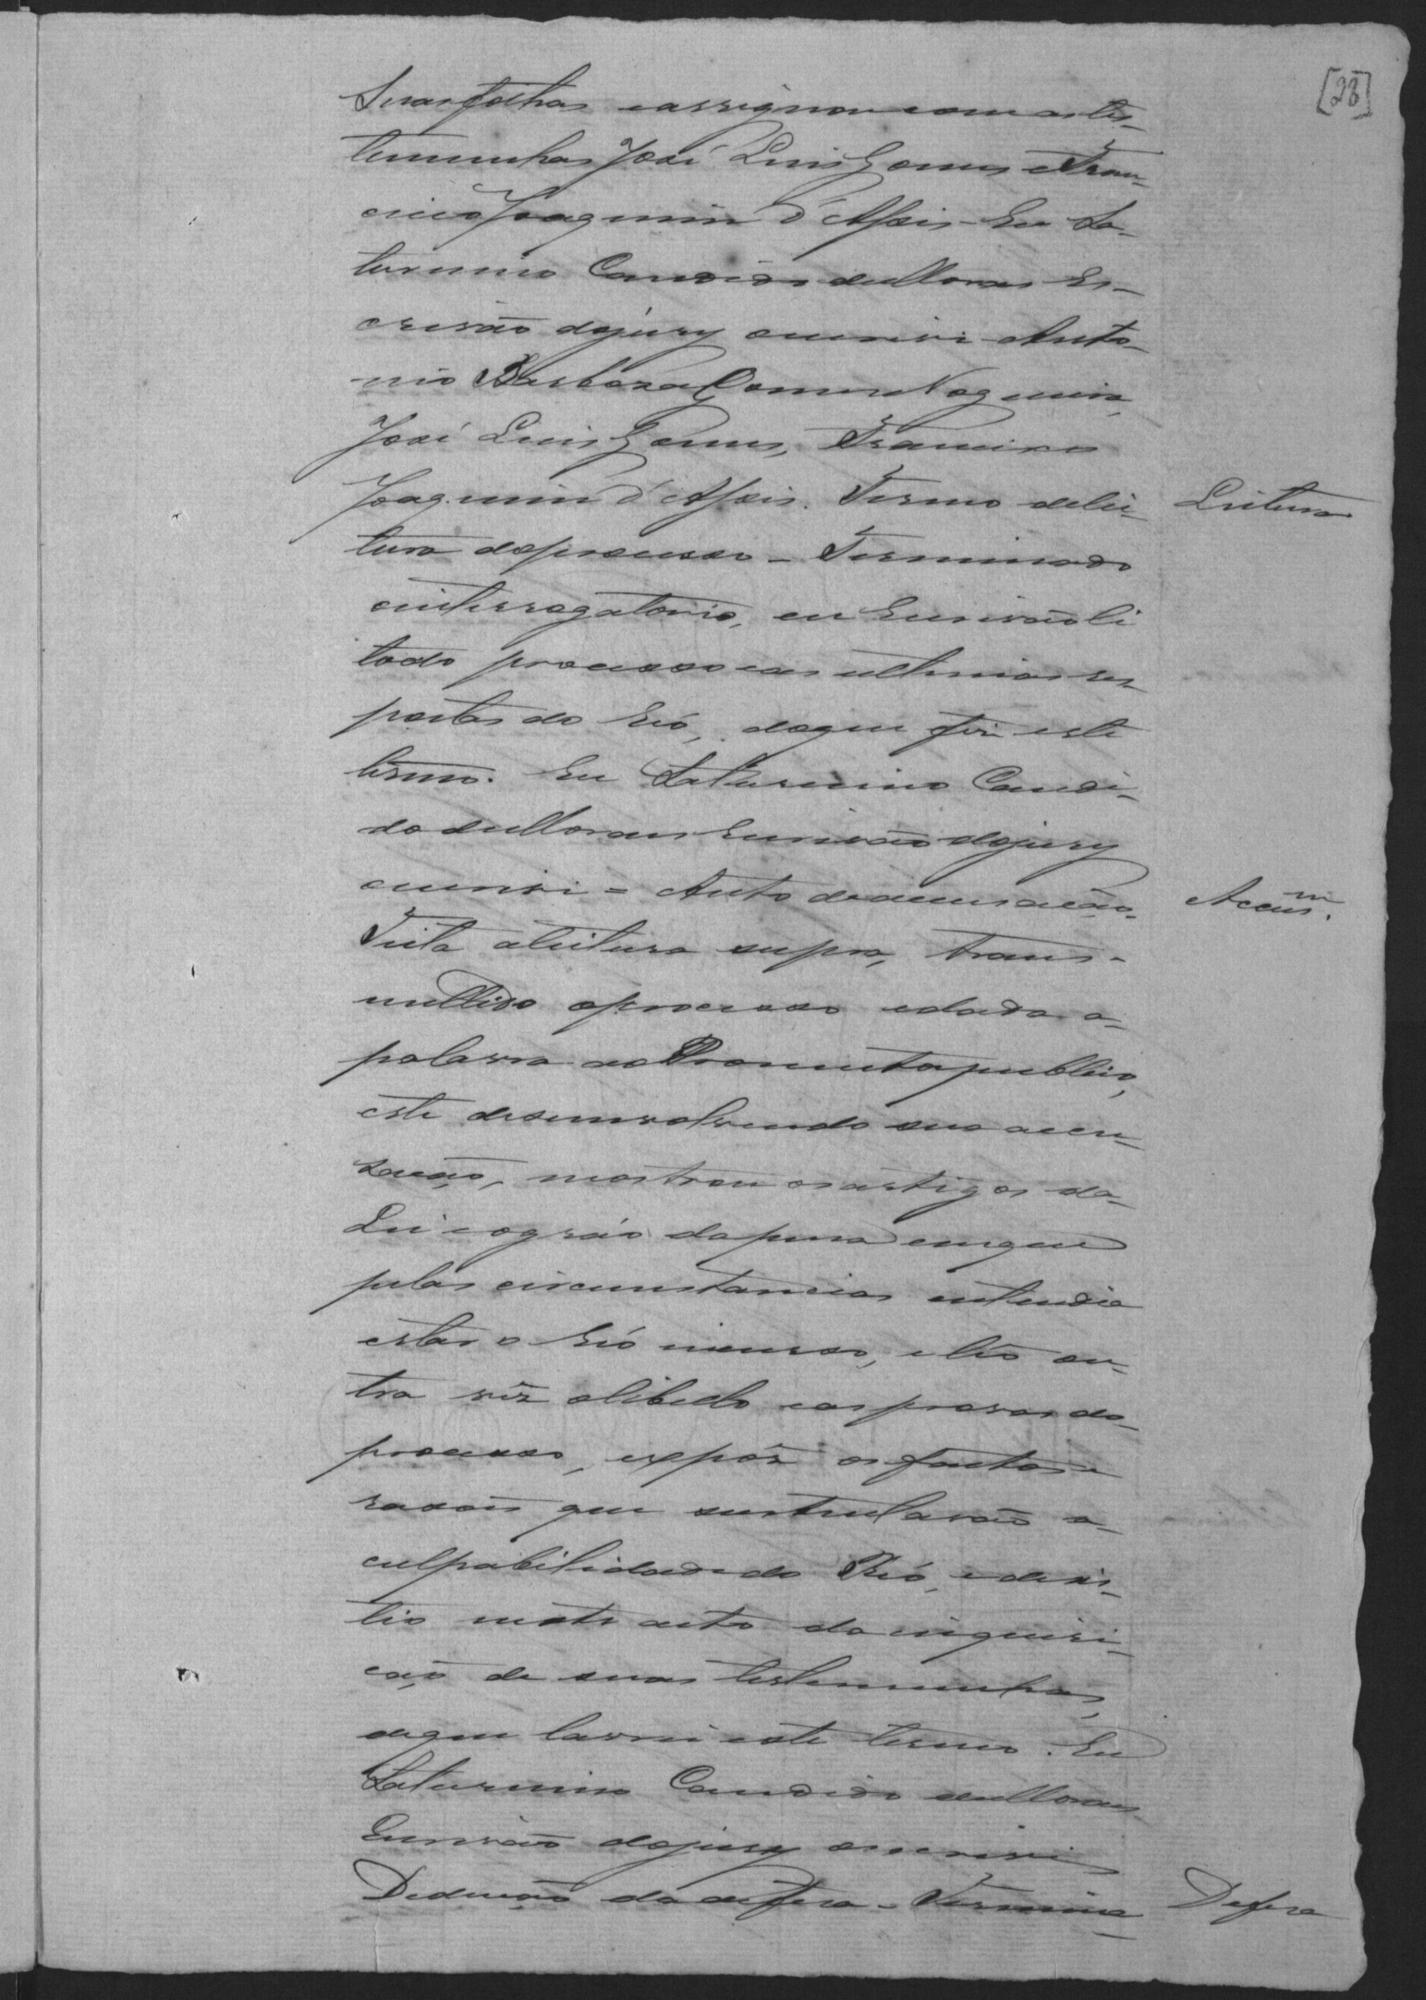 [28]
Suas folhas e assignou com as tes-
temunhas José Luis Gomes e Fran-
cisco Joaquim d'Assis - Eu Sa-
turnino Candido de Moraes Es-
crivão do jury o escrivi - Anto-
nio Barboza Gomes Nogueira,
José Luis Gomes, Francisco
Joaquim d'Assis. Termo de lei-
Leitura
tura do processo - Terminado
o interrogatorio, eu Escrivão li
todo processo e as ultimas res-
postas do Réo, do que fiz este
termo. Eu Saturnino Candi-
do de Moraes Escrivão do jury
o escrivi = Auto de accusação -
Accus.m
Feita a leitura supra, trans-
mettido o processo e dada a
palavra ao Promutor publico,
este desenvolvendo sua accu-
sação, mostrou os artigos da
Lei e o gráo da pena em que
pelas circunstancias entendia
estar o Réo incurso, e leo ou-
tra vez o libello e as provas do
processo, expôz os factos e
rasões que sustentavão a
culpabilidade do Réo, e desis-
tio neste acto da inquiri-
ção de suas testemunhas,
do que lavrei este termo. Eu
Saturnino Candido de Moraes
Escrivão do jury o escrivi
Deducção da defesa - Termina
Defesa